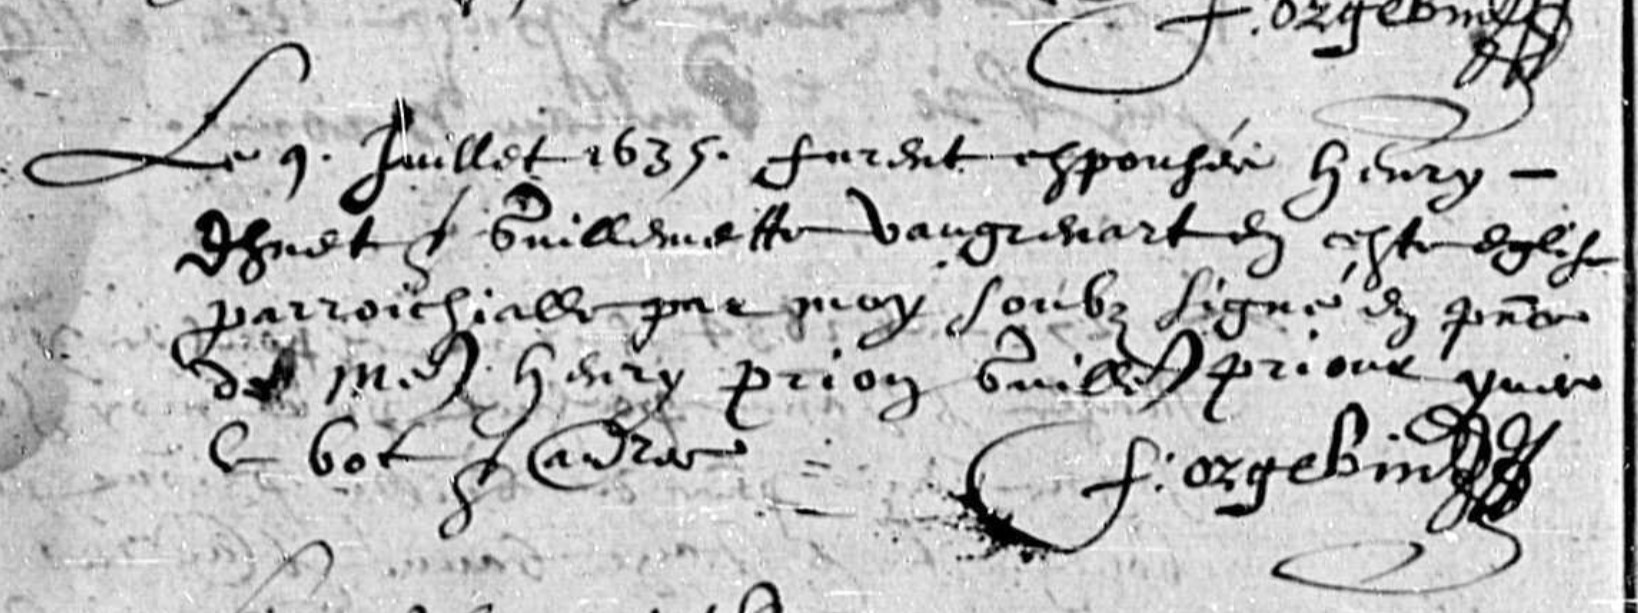 f. orgebin
Le 9. Juillet 1635. furent espousée Henry -
Guillemette Vaugrenart en ceste eglise
parroichialle par moy soubz signé en pnce
de Henry prion Guille prioux yves
le bot & autres
f. orgebin